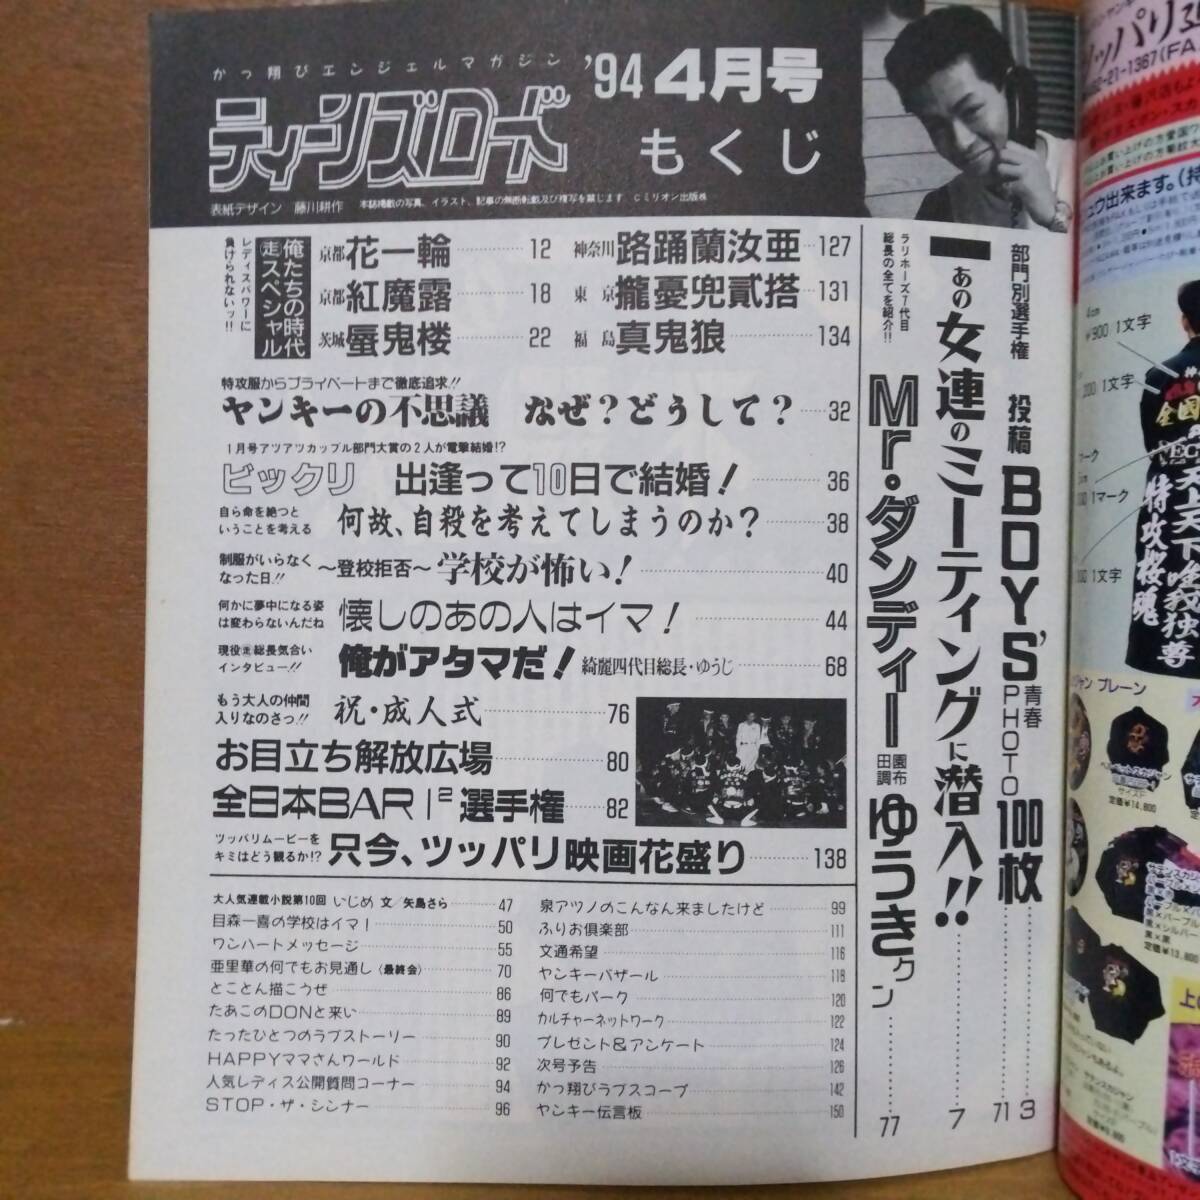 かっ翔びエンジェルマガジン
ティーンズロード
'94 4月号
もくじ
表紙デザイン 藤川耕作 本誌掲載の写真、イラスト、記事の無断転載及び複写を禁じます Cミリオン出版株
部門別選手権 投稿 BOY'S 青春PHOTO 100枚 3
71
あの女連のミーティングに潜入!! 7
ラリホーズ7代目
総長の全てを紹介!!
Mr・ダンディー 田園調布 ゆうきクン 77
レディスパワーに
負けられないッ!!
俺たちの時代
走スペシャル
京都 花一輪 12
京都 紅魔露 18
茨城 蜃鬼楼 22
神奈川 路踊蘭汝亜 127
東京 攏憂兜貳搭 131
福島 真鬼狼 134
特攻服からプライベートまで徹底追求!!
ヤンキーの不思議 なぜ?どうして? 32
1月号アツアツカップル部門大賞の2人が電撃結婚!?
ビックリ 出逢って10日で結婚! 36
自ら命を絶つと
いうことを考える
何故、自殺を考えてしまうのか? 38
制服がいらなく
なった日!!
〜登校拒否〜学校が怖い! 40
何かに夢中になる姿
は変わらないんだね
懐しのあの人はイマ! 44
現役走総長気合い
インタビュー!!
俺がアタマだ! 綺麗四代目総長・ゆうじ 68
もう大人の仲間
入りなのさっ!!
祝・成人式 76
お目立ち解放広場 80
全日本BAR I² 選手権 82
ツッパリムービーを
キミはどう観るか!?
只今、ツッパリ映画花盛り 138
大人気連載小説第10回 いじめ 文/矢島さら 47
目森一喜の学校はイマ! 50
ワンハートメッセージ 55
亜里華の何でもお見通し〈最終会〉 70
とことん描こうぜ 86
たあこのDONと来い 89
たったひとつのラブストーリー 90
HAPPYママさんワールド 92
人気レディス公開質問コーナー 94
STOP・ザ・シンナー 96
泉アツノのこんなん来ましたけど 99
ふりお倶楽部 111
文通希望 116
ヤンキーバザール 118
何でもパーク 120
カルチャーネットワーク 122
プレゼント&アンケート 124
次号予告 126
かっ翔びラブスコープ 142
ヤンキー伝言板 150
4cm
¥900 1文字
1文字
1マーク
1文字
天上天下唯我独尊
特攻桜魂
プレーン
サイズF
定価¥14,800